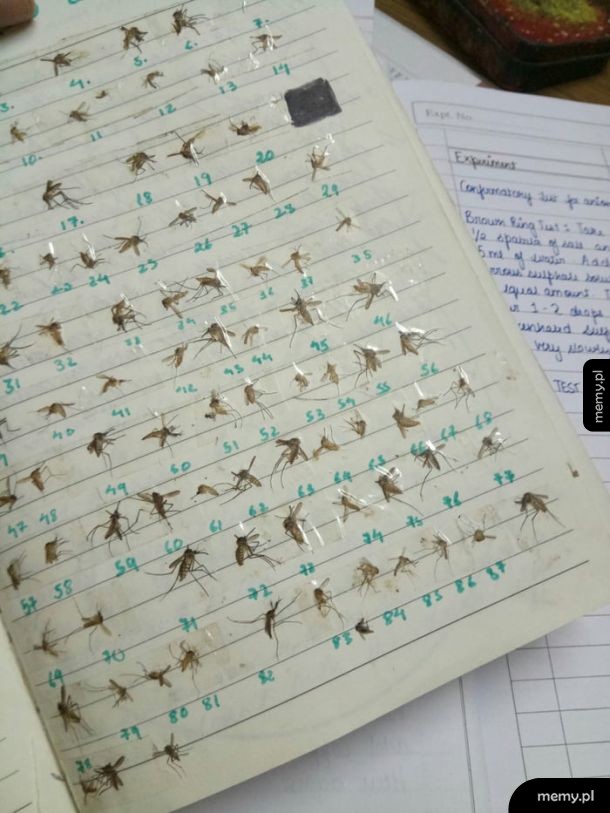 3. 4. 5. 6. 7.
10. 11 12 13 14
17. 18 19 20
22 23 24 25 26 27 28 29
31 32 33 34 35 36 37 35
40 41 42 43 44 45 46
47 48 49 50 51 52 53 54 55 56
57 58 59 60 61 62 63 64 65 66 67 68
69 70 71 72 73 74 75 76 77
78 79 80 81 82 83 84 85 86 87
Expt. No.
Experiment
Confirmatory test for anion
Brown Ring Test : Take
1/2 spatula of salt
5 ml of water. Add
sulphate
equal amount.
1-2 drops
very slowly
TEST
memy.pl
memy.pl